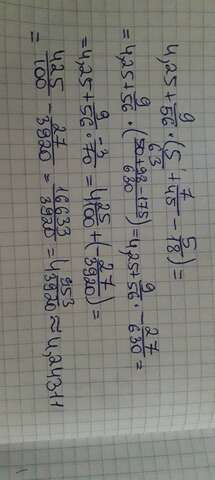 4,25 + 9/56 · (5/63 + 7/45 - 5/18) =
= 4,25 + 9/56 · (50 + 98 - 175/630) = 4,25 + 9/56 · -27/630 =
= 4,25 + 9/56 · -3/70 = 4 25/100 + (-27/3920) =
= 425/100 - 27/3920 = 16633/3920 = 4 953/3920 ≈ 4,24311